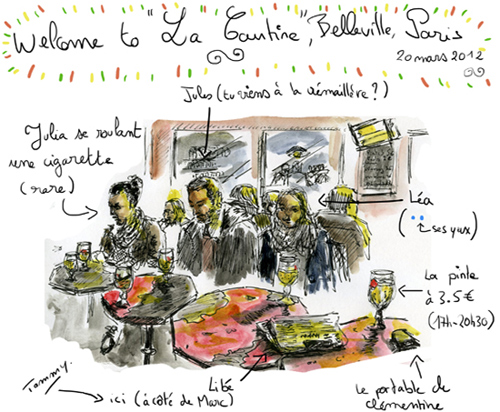 Welcome to "La Cantine", Belleville, Paris
20 mars 2012
Jules (tu viens à la crémaillère ?)
Julia se roulant
une cigarette
(rare)
Léa
(
ses yeux)
La pinte
à 3.5€
(17h-20h30)
Tammy.
ici (à côté de Marc)
Libé
Le portable de
clémentine